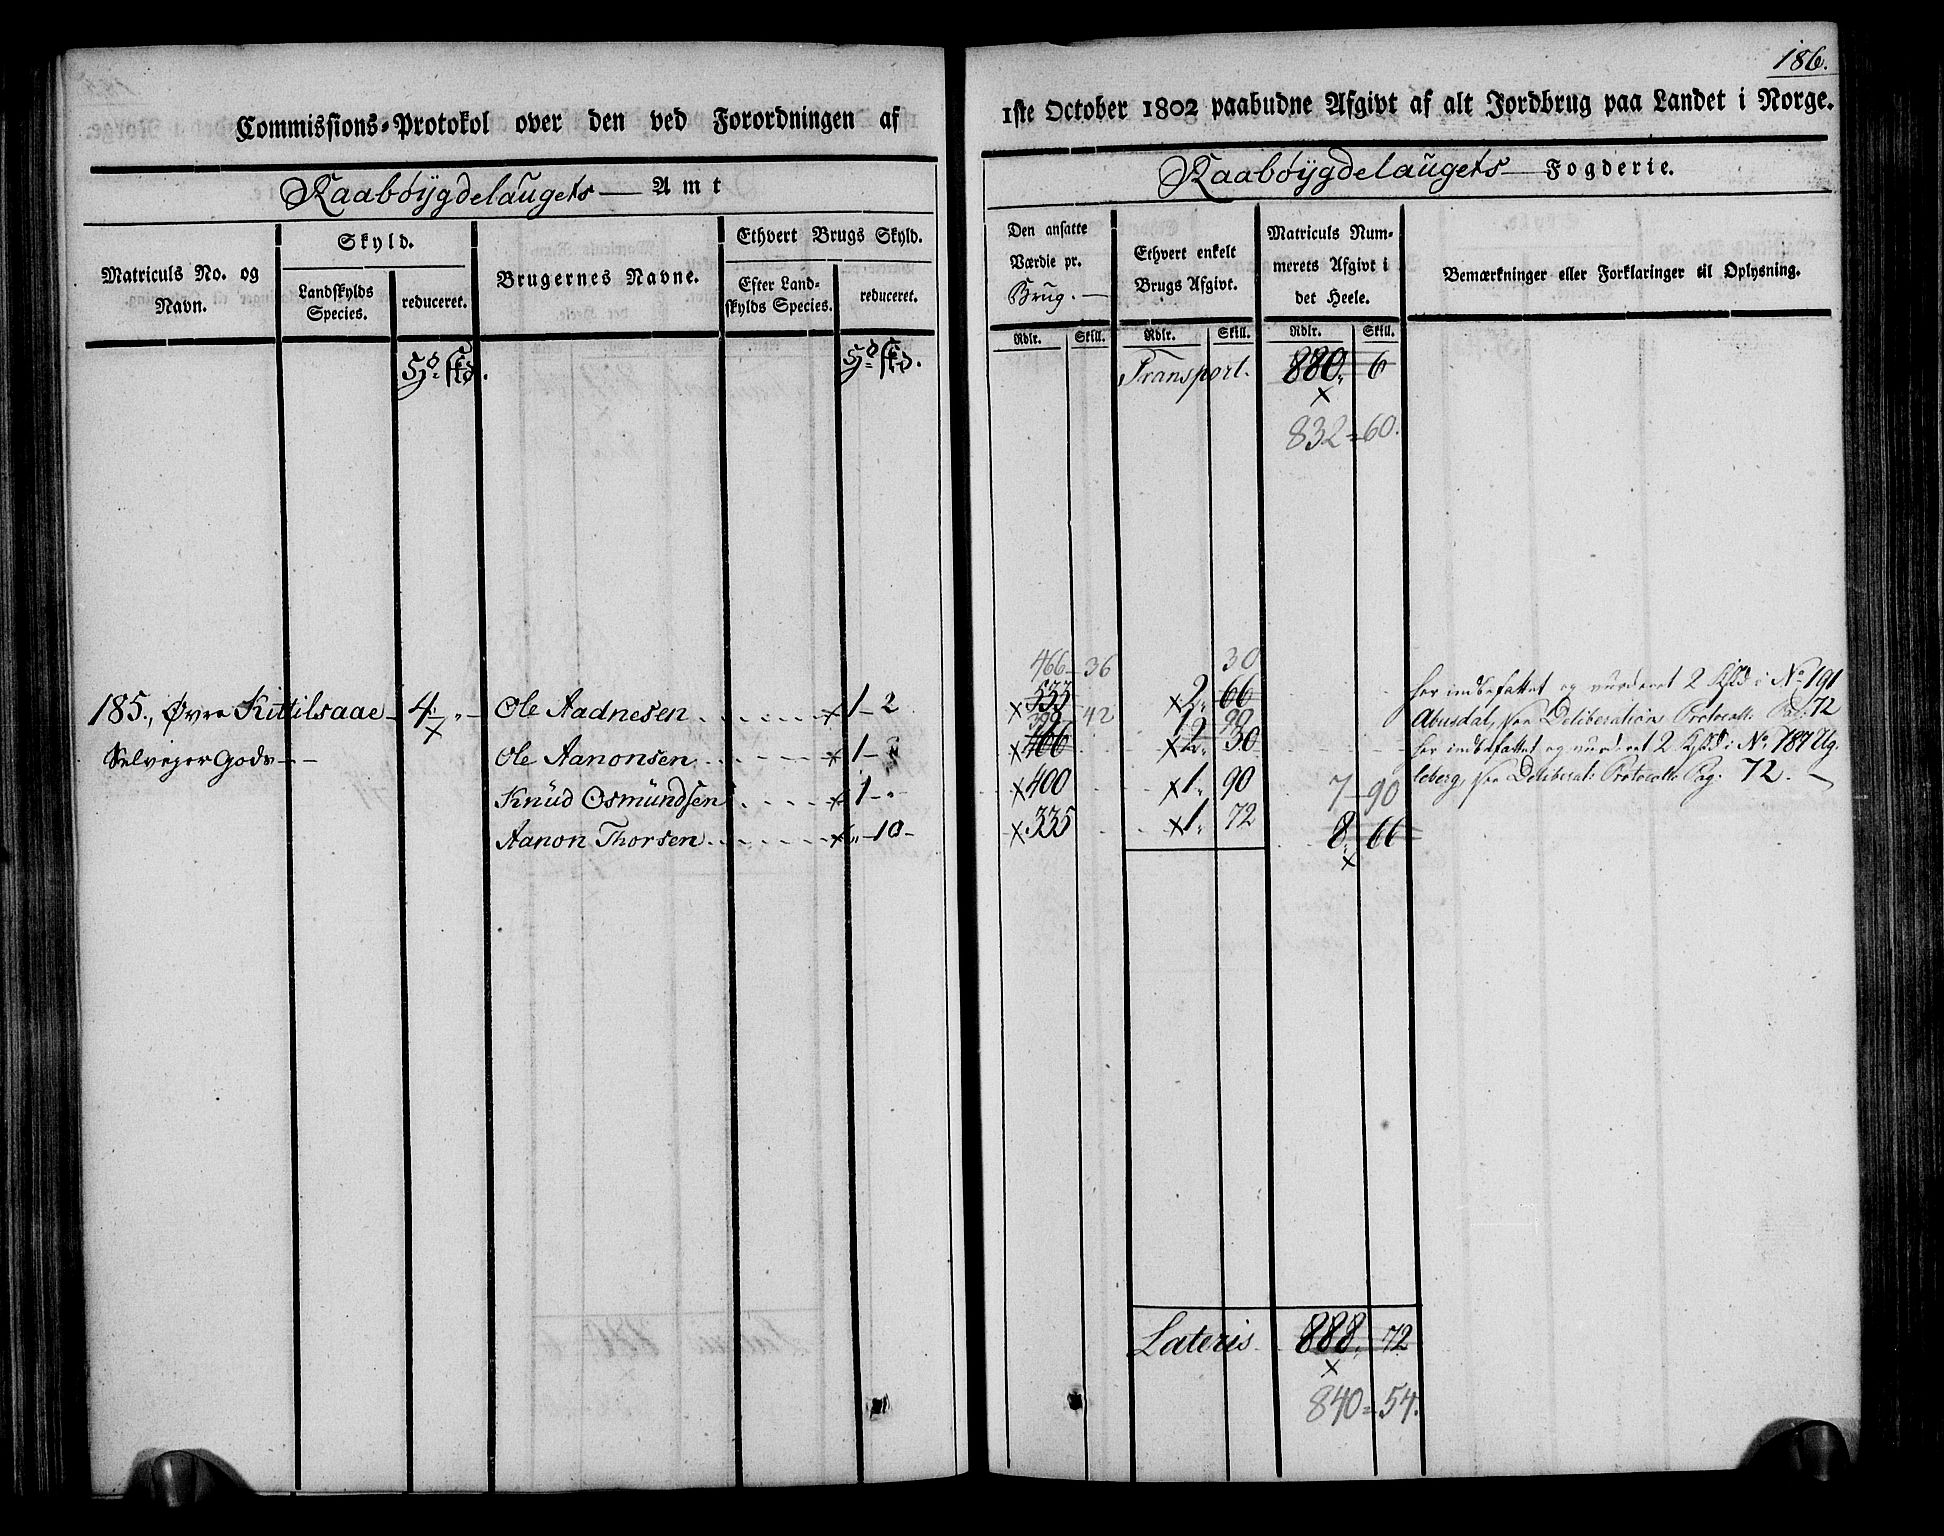 186.
Commissions-Protokol over den ved Forordningen af 1ste October 1802 paabudne Afgivt af alt Jordbrug paa Landet i Norge.
Raabøygdelaugets Amt
Raabøygdelaugets Fogderie.
Matriculs No. og Navn.
Skyld.
Landskylds Species.
reduceret.
Brugernes Navne.
Ethvert Brugs Skyld.
Efter Landskylds Species.
reduceret.
Den ansatte Værdie pr. Brug.
Rdlr. Skill.
Ethvert enkelt Brugs Afgivt.
Rdlr. Skill.
Matriculs Nummerets Afgivt i det Heele.
Rdlr. Skill.
Bemærkninger eller Forklaringer til Oplysning.
Transport. 880. 6
832=60.
466 - 36 30
185., Øvre Kittilsaae 4 " Ole Aadnesen 1 - 2 533 2. 66
her indbefattet og vurderet 2 i No 191
Abusdal, see Deliberations Protocoll Pag: 72
42 90
Selveyer Gods Ole Aanonsen 1 - 466 2. 30
her indbefattet og vurderet 2 i No 187 Ug-
leberg, see Deliberat: Protocoll Pag: 72.
Knud Osmundsen 1 - " 400 1. 90 7 - 90
Aanon Thorsen " - 10 - 335 1. 72 8. 66
Lateris 888. 72
840=54.